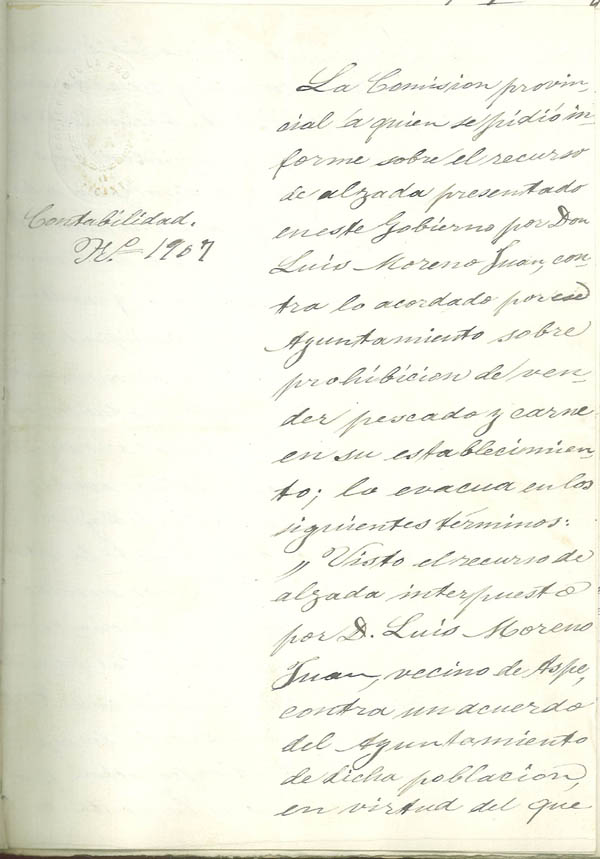 Contabilidad.
N.º 1907
La Comision provin-
cial á quien se pidió in-
forme sobre el recurso
de alzada presentado
en este Gobierno por Don
Luis Moreno Juan, con-
tra lo acordado por ese
Ayuntamiento sobre
prohibicion de ven-
der pescado y carne
en su establecimien-
to; lo evacua en los
siguientes términos:
" Visto el recurso de
alzada interpuesto
por D. Luis Moreno
Juan, vecino de Aspe,
contra un acuerdo
del Ayuntamiento
de dicha poblacion,
en virtud del que